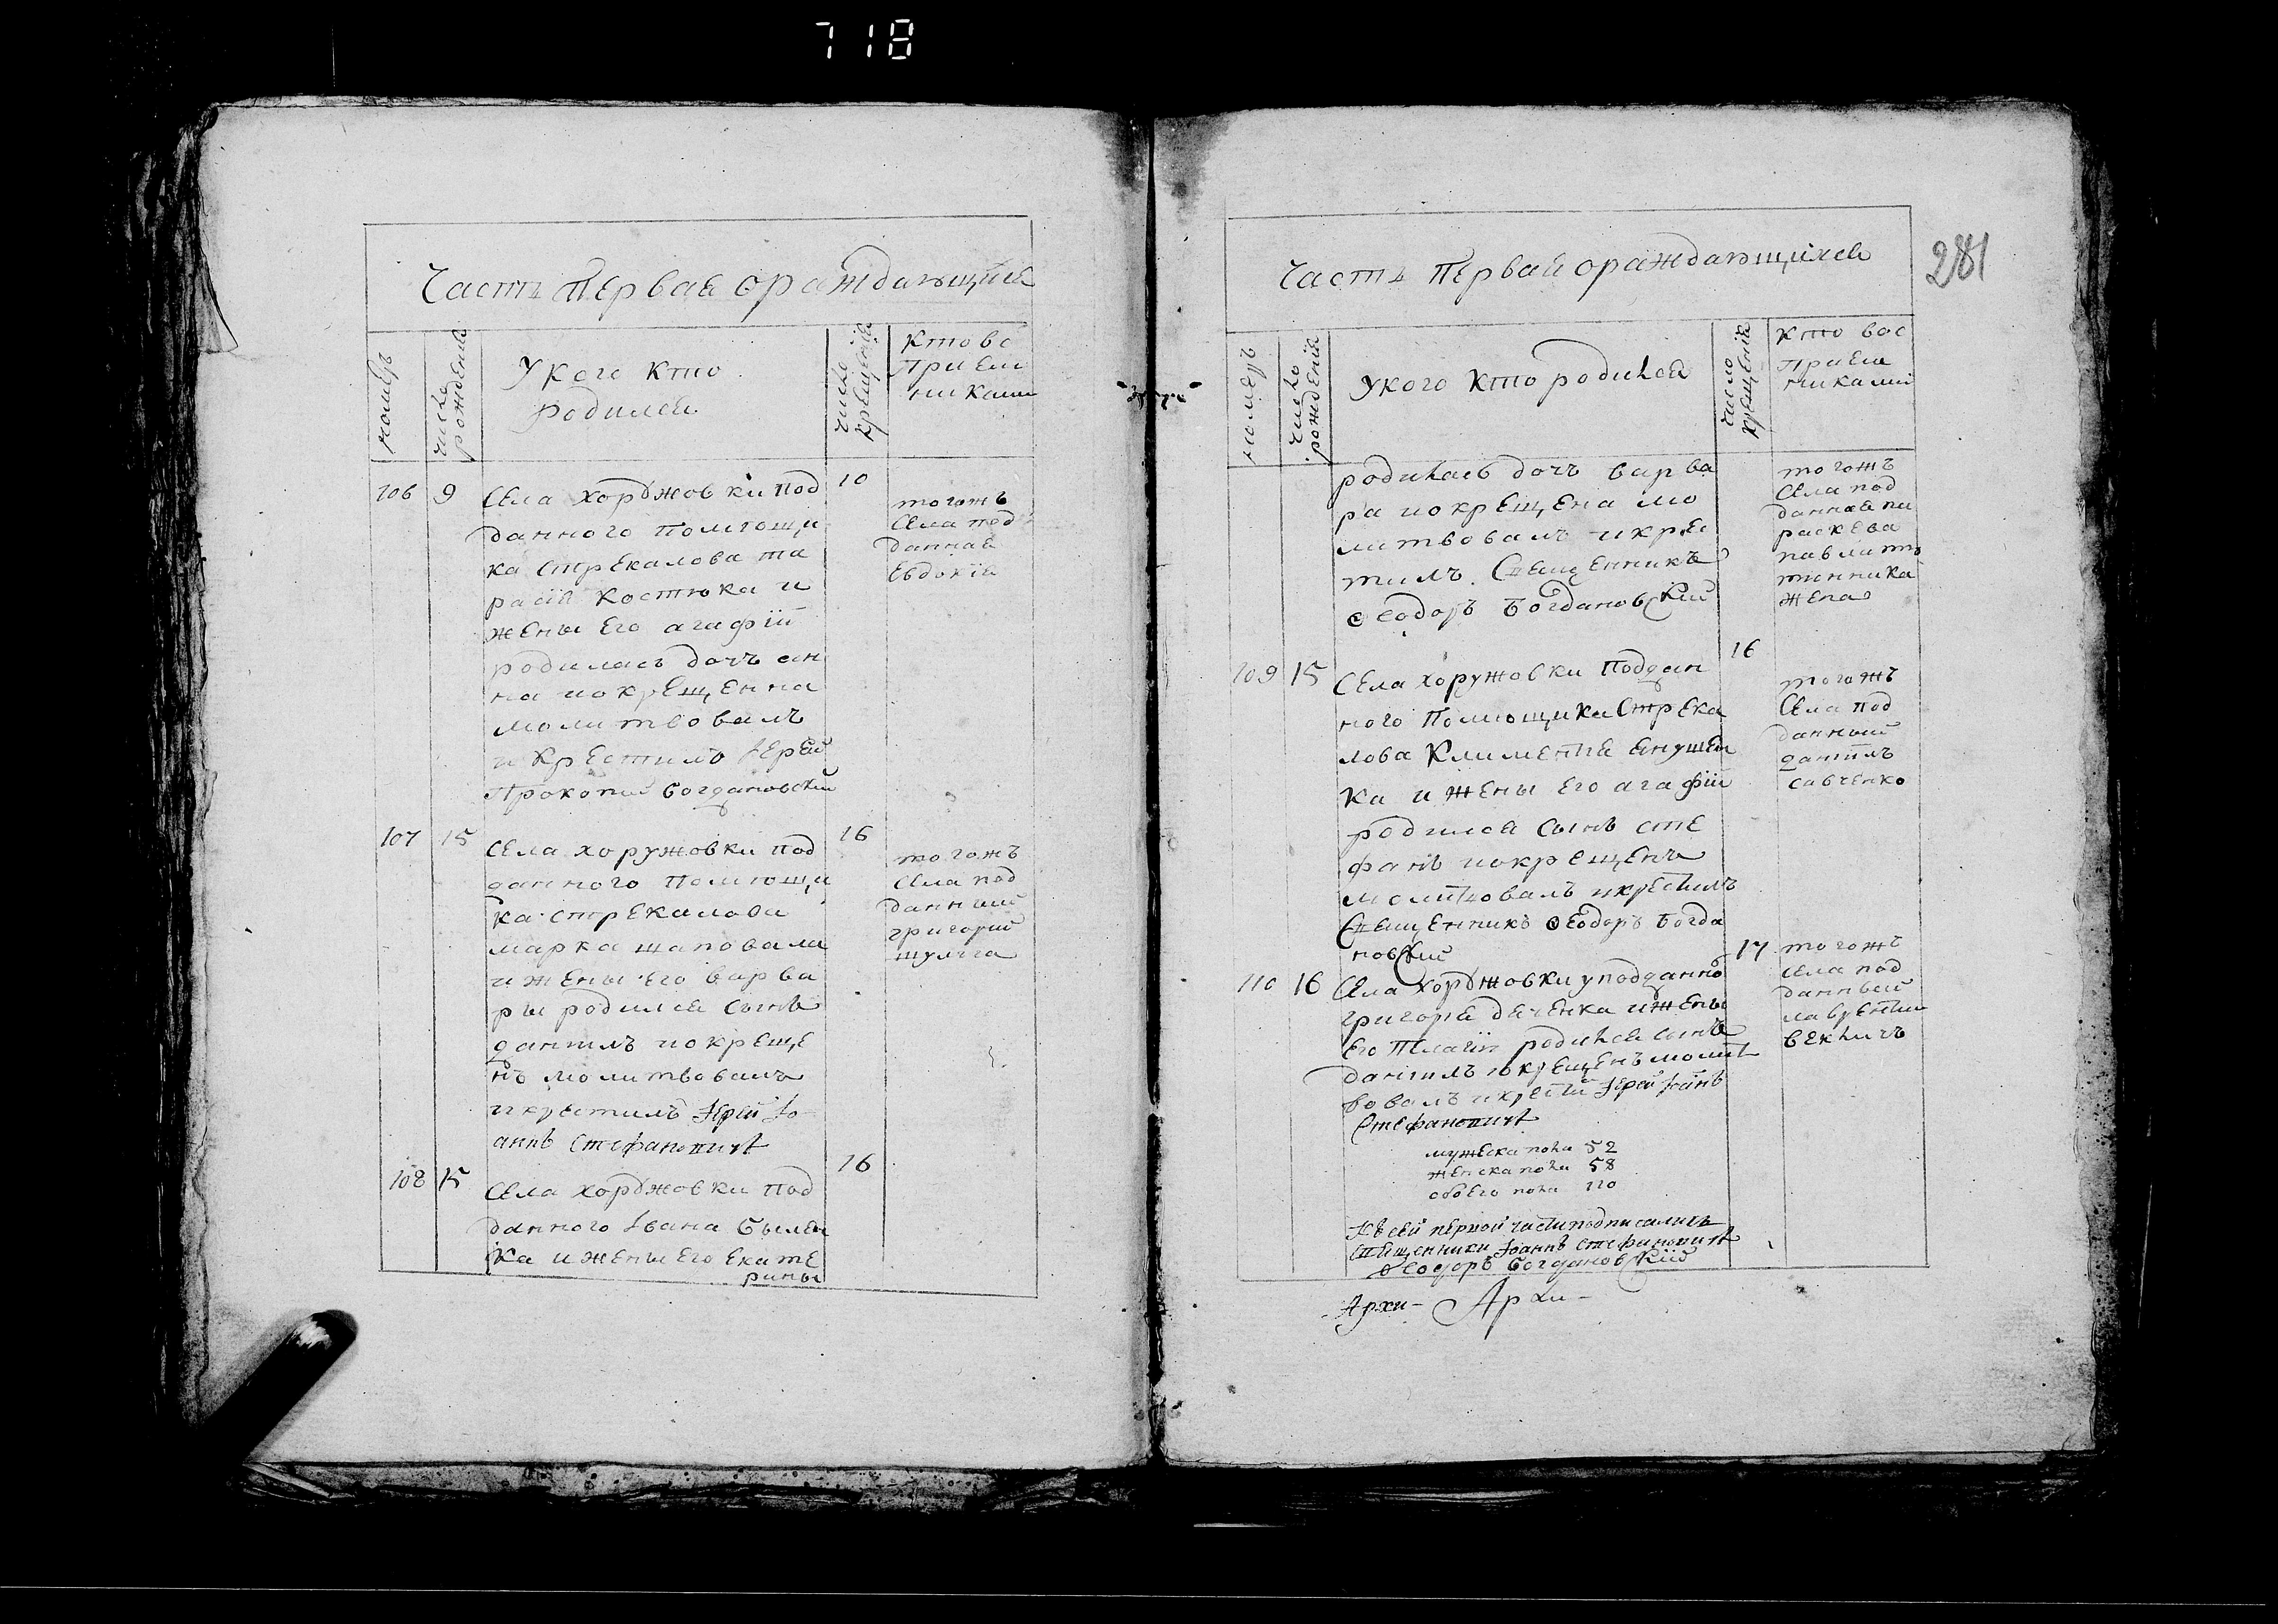 718
Часть первая ораждающихся
номеръ
число рожденія
У кого кто
родился
число крещенія
кто вос
приєм
никами
106
9
Села Хоружовки под
данного помющи
ка Стрекалова та
расія Костюка и
жены его агафїи
родилась дочъ ан
на и окрещенна
молитвовалъ
и крестилъ Іерей
Прокопий Богдановский
10
тогожъ
села под
данная
Евдокія
107
15
Села Хоружовки под
данного помющи
ка Стрекалова
марка шаповала
и жены его варва
ры родился сынъ
данїилъ и окреще
нъ молитвовалъ
и крестилъ Іерей Іо
аннъ Стефановичъ
16
тогожъ
села под
данный
григорий
шулга
108
15
Села Хоружовки под
данного Івана Былен
ка и жены его екате
рины
16
281
Часть первая ораждающихся
номеръ
число рожденія
У кого кто родился
число крещенія
кто вос
приєм
никами
родилась дочъ варва
ра и окрещена мо
литвовалъ и крес
тилъ Священникъ
Ѳеодоръ Богдановский
тогожъ
села под
данная па
раскева
павла
жена
109
15
Села хоружовки поддан
ного помющика Стрека
лова Климентія янушен
ка и жены его агафїи
родился сынъ сте
фанъ и окрещенъ
молитвовалъ и крестилъ
Священникъ Ѳеодоръ Богда
новский
16
тогожъ
села под
данный
данїилъ
савченко
110
16
Села Хоружовки уподданно
григорія дяченка и жены
его Пелагїи родился сынъ
даніилъ и окрещенъ молит
вовалъ и крестил Іерей Іоанъ
Стефановичъ
17
тогожъ
села под
данный
лаврентий
векличъ
мужеска пола 52
женска пола 58
обоего пола 110
Къ сей первой части подписались
Священники Іоаннъ Стефановичъ
Ѳеодоръ Богдановский
Архи- Архи-